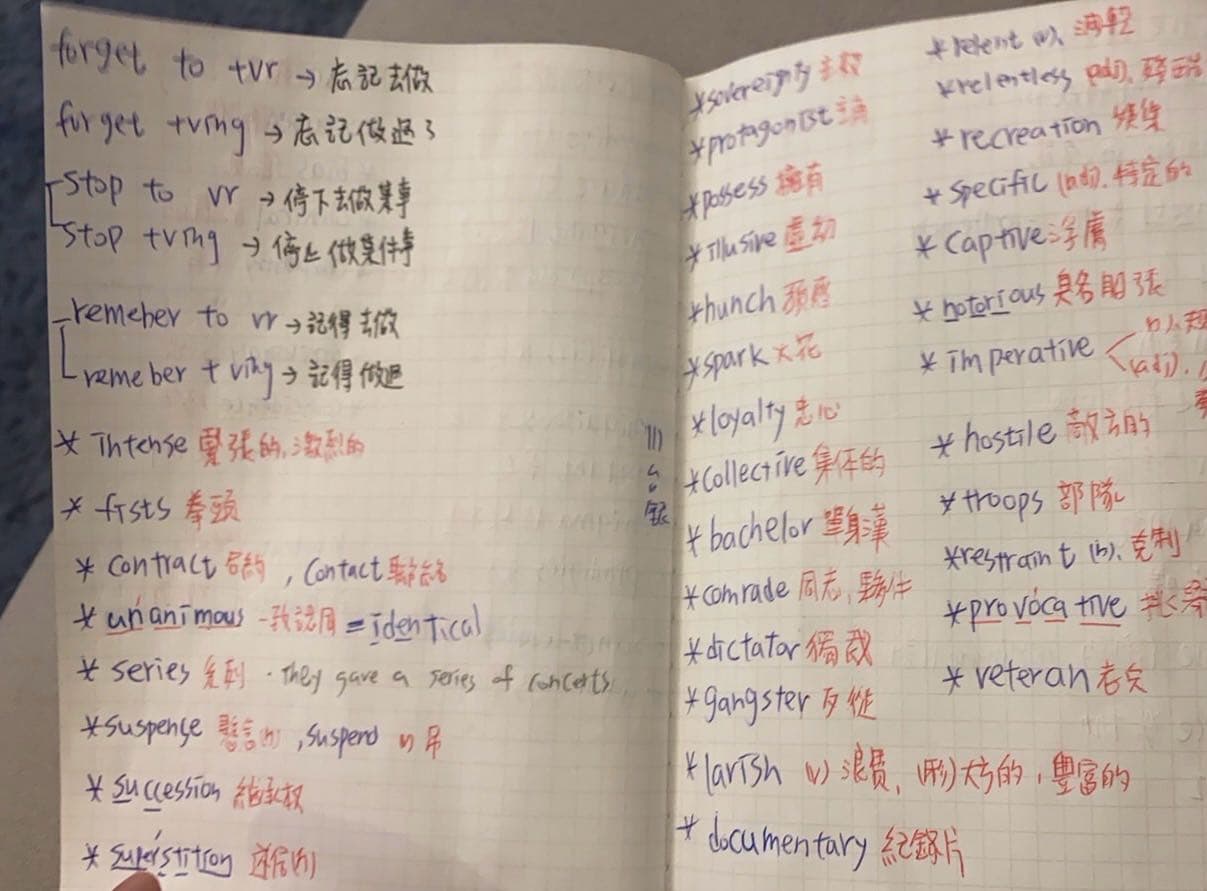 forget to +vr → 忘記去做
forget +ving → 忘記做過了
stop to vr → 停下去做某事
stop +ving → 停止做某件事
remeber to vr → 記得去做
remeber + ving → 記得做過
* intense 緊張的, 激烈的
* fists 拳頭
* contract 合約, contact 聯絡
* unanimous 一致認同 = identical
* series 系列 · they gave a series of concerts
* suspense 懸念(n), suspend v) 吊
* succession 繼承權
* superstition 迷信(n)
* sovereignty 主權
* protagonist 主角
* possess 擁有
* illusive 虛幻
* hunch 預感
* spark 火花
* loyalty 忠心
* collective 集体的
* bachelor 單身漢
* comrade 同志, 夥伴
* dictator 獨裁
* gangster 歹徒
* lavish (v) 浪費, (形) 大方的, 豐富的
* documentary 紀錄片
* relent (v),
* relentless (adj),
* recreation 娛樂
* specific (adj), 特定的
* captive 浮虜
* notorious 臭名昭張
* imperative
n),
(adj),
* hostile 敵方的
* troops 部隊
* restraint (n), 克制
* provocative
* veteran 老兵